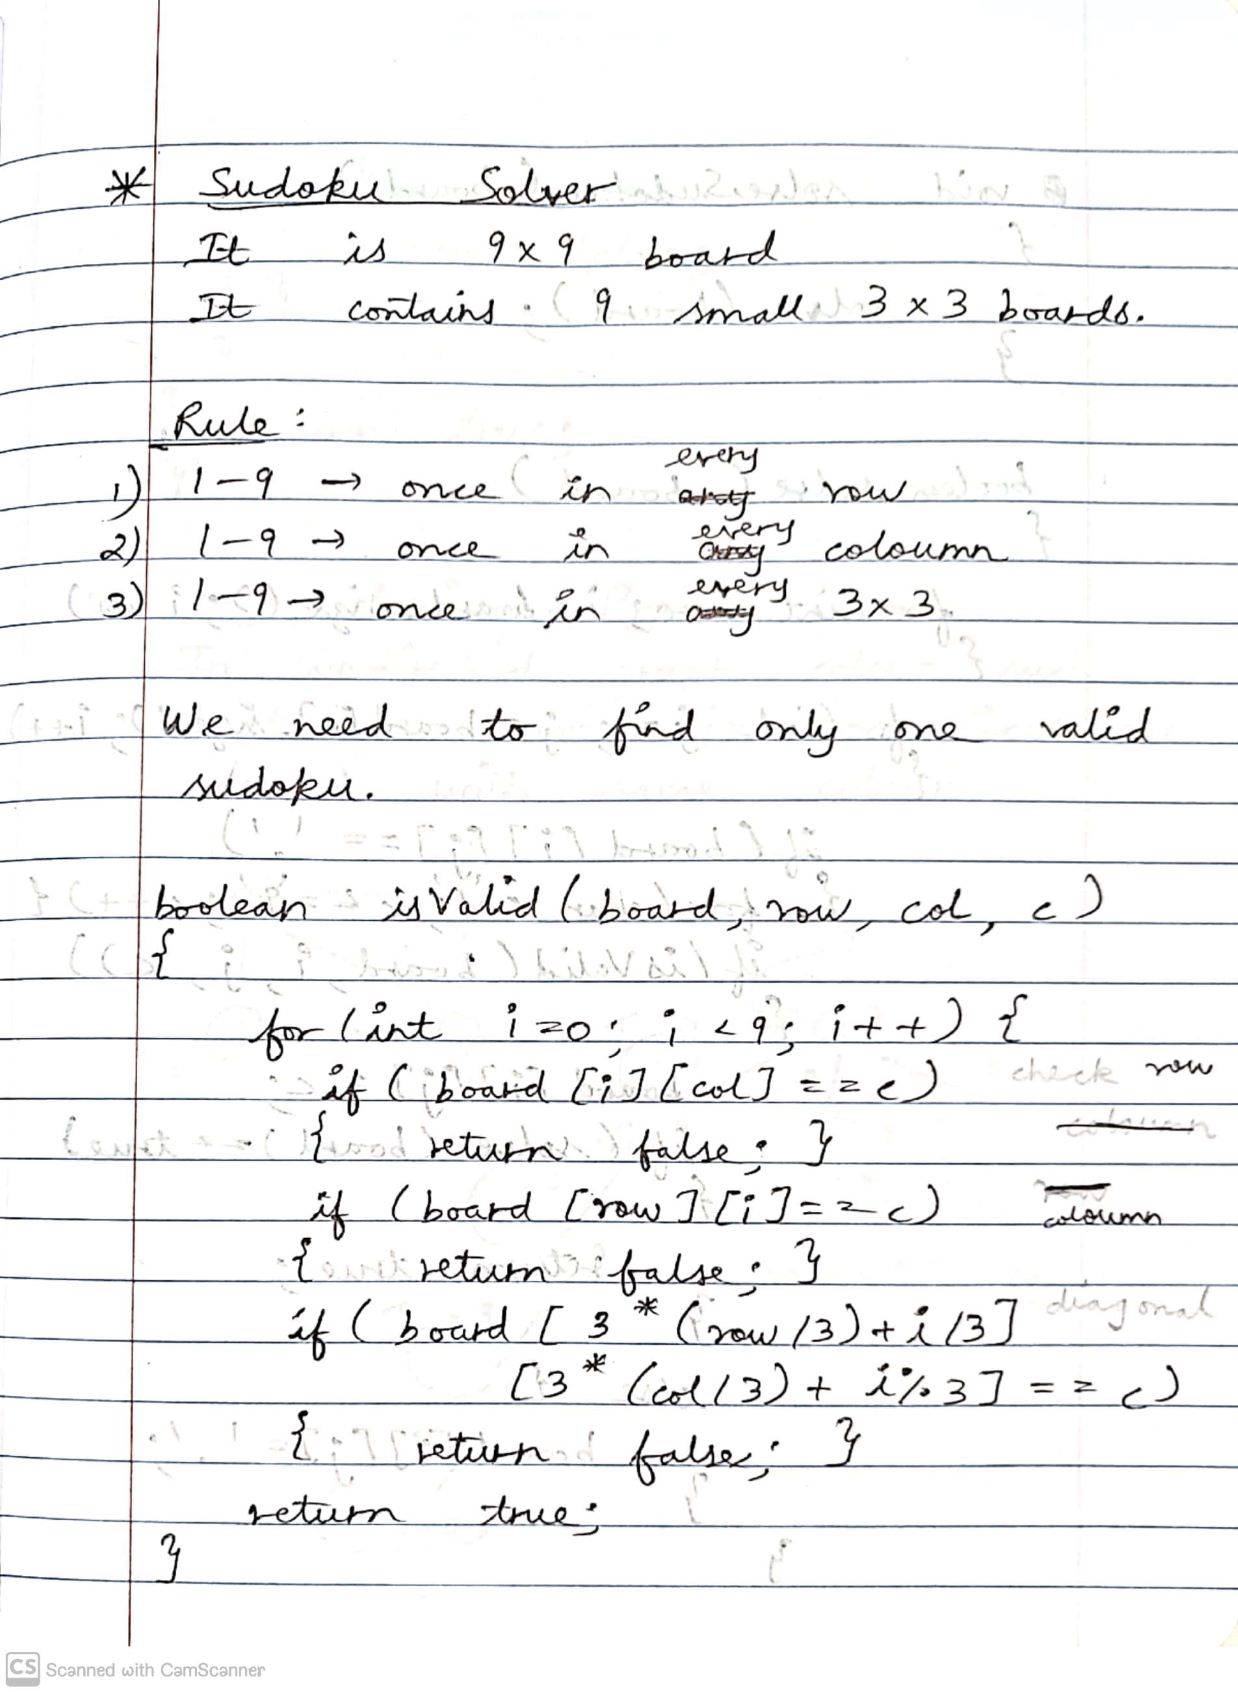 * Sudoku Solver
It is 9 x 9 board
It contains 9 small 3 x 3 boards.
Rule :
every
1) 1-9 → once in any row
every
2) 1-9 → once in any coloumn
every
3) 1-9 → once in any 3x3
We need to find only one valid
sudoku.
boolean isValid ( board, row, col, c )
{
for (int i=0; i <9; i++) {
if ( board [i] [col] == c) check row
{ return false; } column
if ( board [row] [i] == c) row
coloumn
{ return false; }
if ( board [ 3 * (row /3) + i /3] diagonal
[3 * (col /3) + i%3] == c)
{ return false; }
return true;
}
CS Scanned with CamScanner